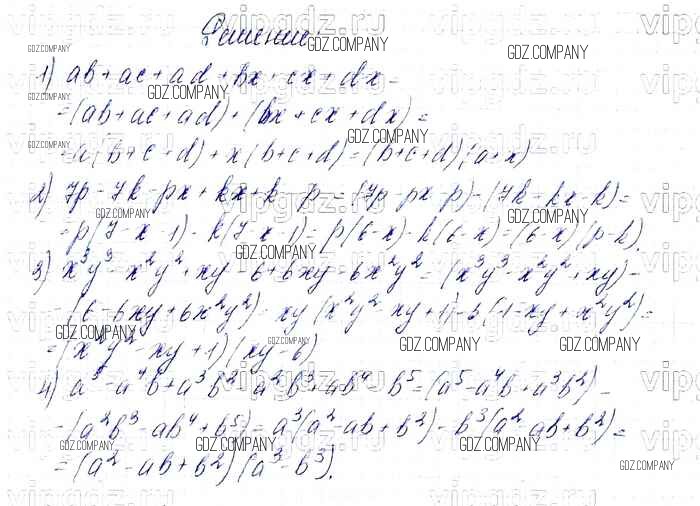 Решение
1) ab + ac + ad + bx + cx + dx =
= (ab + ac + ad) + (bx + cx + dx) =
= a(b + c + d) + x(b + c + d) = (b + c + d)(a + x)
2) 7p - 7k - px + kx + k - p = (7p - px - p) - (7k - kx - k) =
= p(7 - x - 1) - k(7 - x - 1) = p(6 - x) - k(6 - x) = (6 - x)(p - k).
3) x³y³ - x²y² + xy - 6 + 6xy - 6x²y² = (x³y³ - x²y² + xy) -
- (6 - 6xy + 6x²y²) = xy(x²y² - xy + 1) - 6(1 - xy + x²y²) =
= (x²y² - xy + 1)(xy - 6)
4) a⁵ - a⁴b + a³b² - a²b³ + ab⁴ - b⁵ = (a⁵ - a⁴b + a³b²) -
- (a²b³ - ab⁴ + b⁵) = a³(a² - ab + b²) - b³(a² - ab + b²) =
= (a² - ab + b²)(a³ - b³).